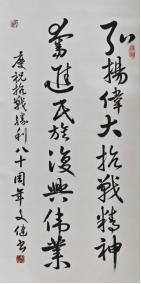 弘揚偉大抗戰精神
奮進民族復興偉業
慶祝抗戰勝利八十周年文健書